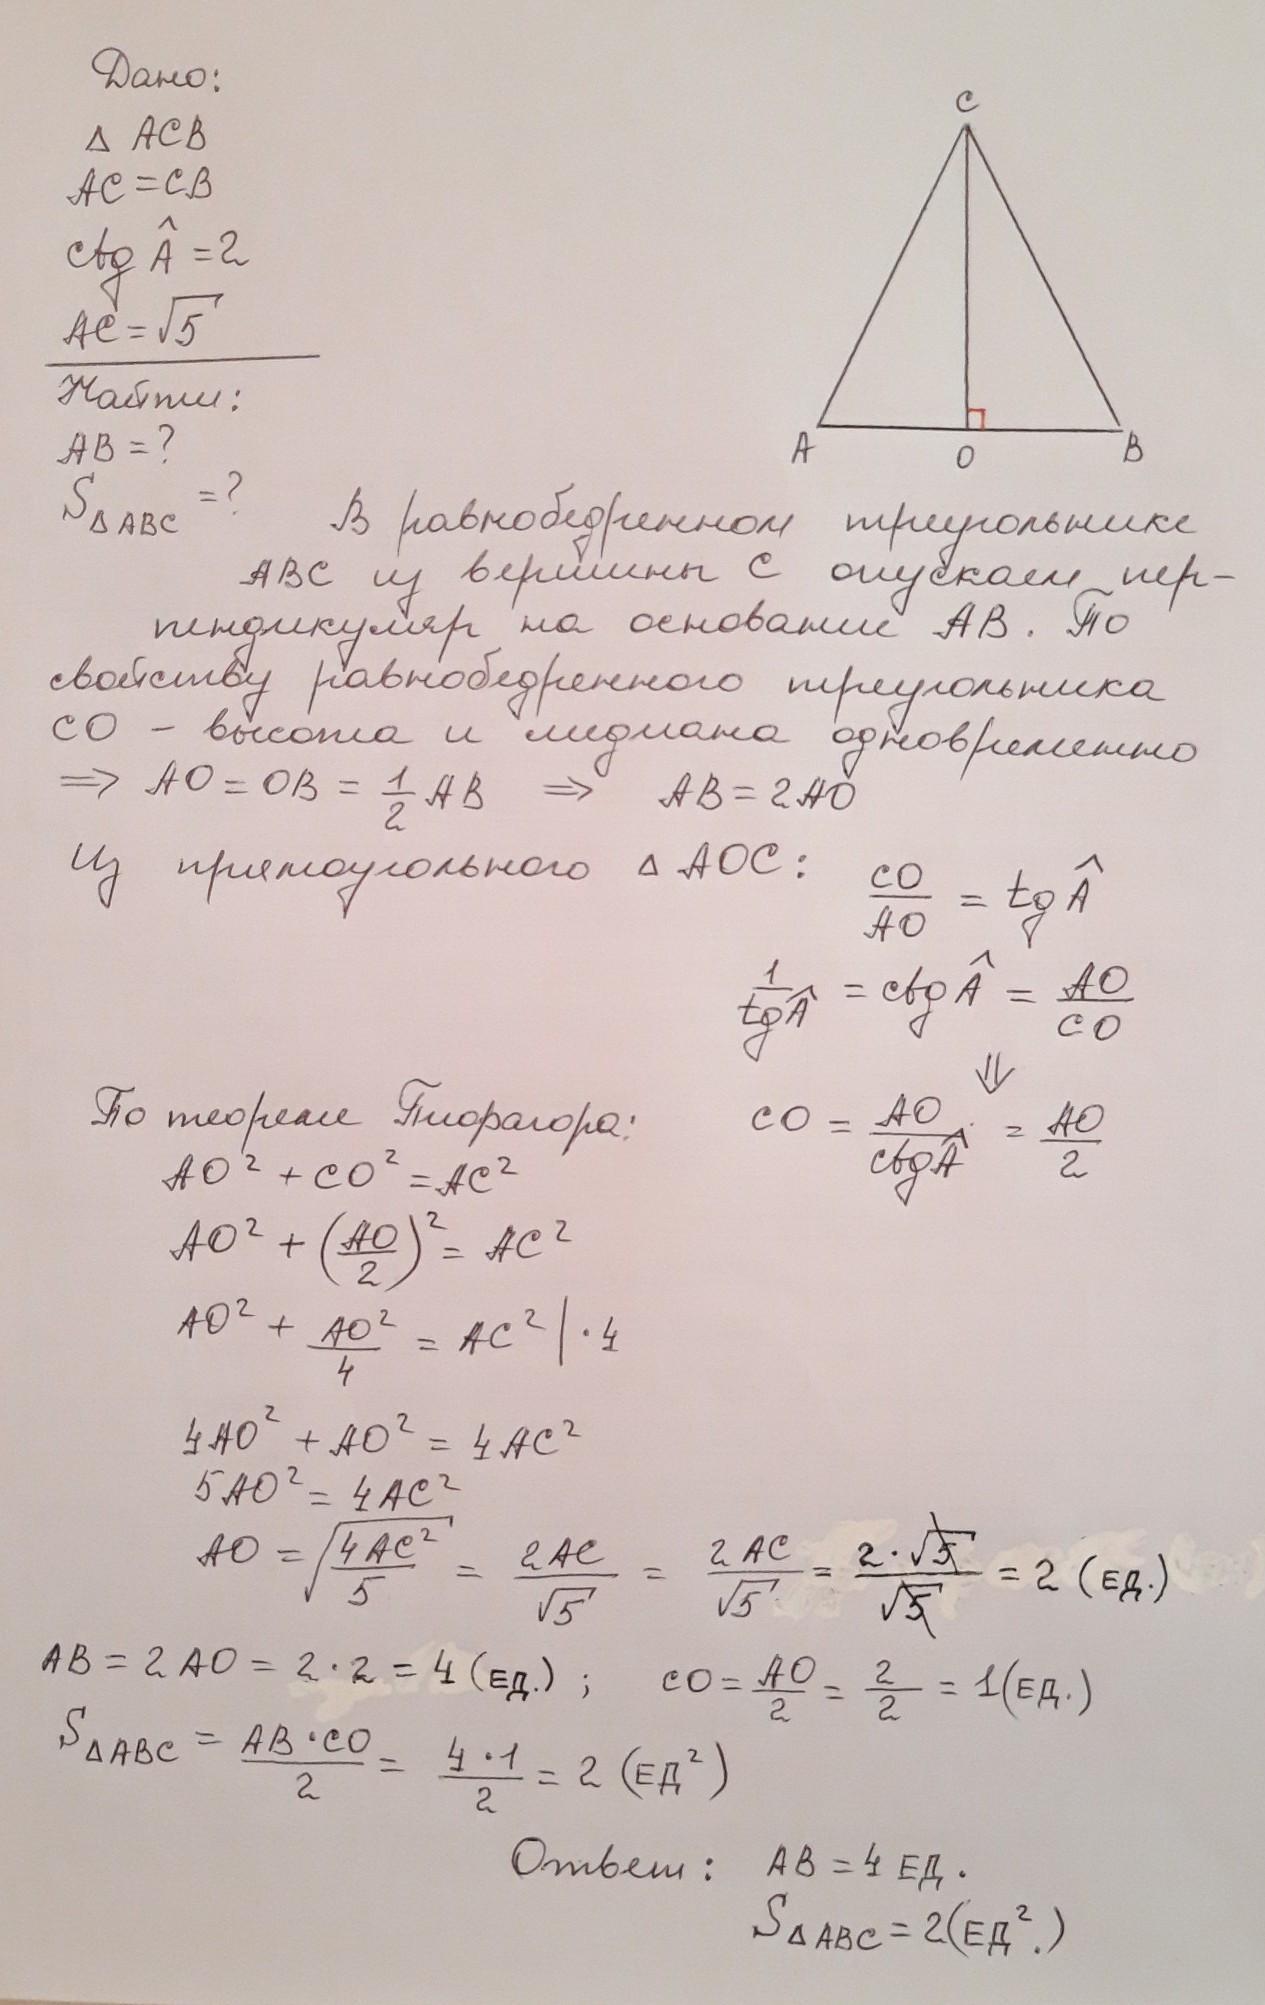 Дано:
Δ ACB
AC = CB
ctg Â = 2
AC = √5
Найти:
AB = ?
S Δ ABC = ?
C
A
O
B
В равнобедренном треугольнике
ABC из вершины C опускаем пер-
пендикуляр на основание AB. По
свойству равнобедренного треугольника
CO – высота и медиана одновременно
⇒ AO = OB = 1/2 AB ⇒ AB = 2AO
Из прямоугольного Δ AOC:
CO/AO = tg Â
1/tg Â = ctg Â = AO/CO
⇓
CO = AO/ctg Â = AO/2
По теореме Пифагора:
AO² + CO² = AC²
AO² + (AO/2)² = AC²
AO² + AO²/4 = AC² | · 4
4AO² + AO² = 4AC²
5AO² = 4AC²
AO = √(4AC²/5) = 2AC/√5 = 2AC/√5 = 2·√5/√5 = 2 (ЕД.)
AB = 2AO = 2·2 = 4 (ЕД.) ; CO = AO/2 = 2/2 = 1 (ЕД.)
S Δ ABC = AB·CO/2 = 4·1/2 = 2 (ЕД²)
Ответ: AB = 4 ЕД.
S Δ ABC = 2 (ЕД².)